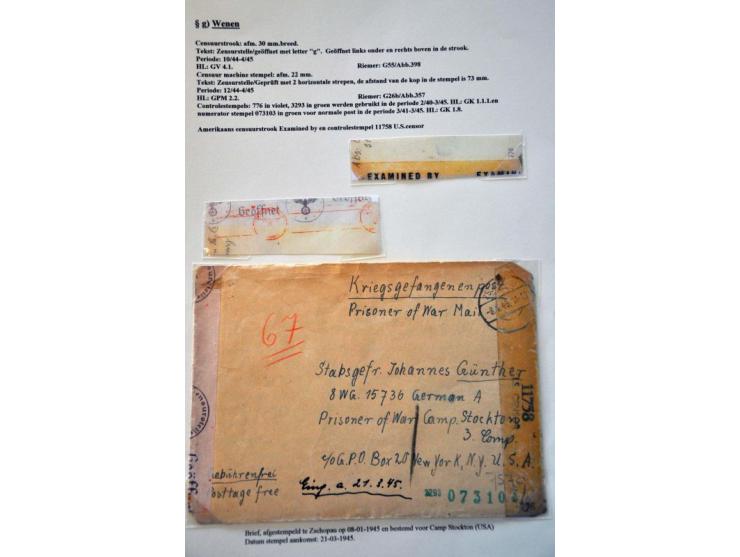 § g) Wenen
Censuurstrook: afm. 30 mm.breed.
Tekst: Zensurstelle/geöffnet met letter "g". Geöffnet links onder en rechts boven in de strook.
Periode: 10/44-4/45
HL: GV 4.1. Riemer: G55/Abb.398
Censuur machine stempel: afm. 22 mm.
Tekst: Zensurstelle/Geprüft met 2 horizontale strepen, de afstand van de kop in de stempel is 73 mm.
Periode: 12/44-4/45
HL: GPM 2.2. Riemer: G26b/Abb.357
Controlestempels: 776 in violet, 3293 in groen werden gebruikt in de periode 2/40-3/45. HL: GK 1.1.1.en
numerator stempel 073103 in groen voor normale post in de periode 3/41-3/45. HL: GK 1.8.
Amerikaans censuurstrook Examined by en controlestempel 11758 U.S.censor
EXAMINED BY
Geöffnet
Kriegsgefangenenpost
Prisoner of War Mail
67
Stabsgefr. Johannes Günther
8WG. 15736 German A
Prisoner of War Camp. Stockton
3. Comp.
c/o G.P.O. Box 20 New York N.Y. U.S.A.
11758
Eing. a. 21.3.45.
3293 073103
Brief, afgestempeld te Zschopau op 08-01-1945 en bestemd voor Camp Stockton (USA)
Datum stempel aankomst: 21-03-1945.